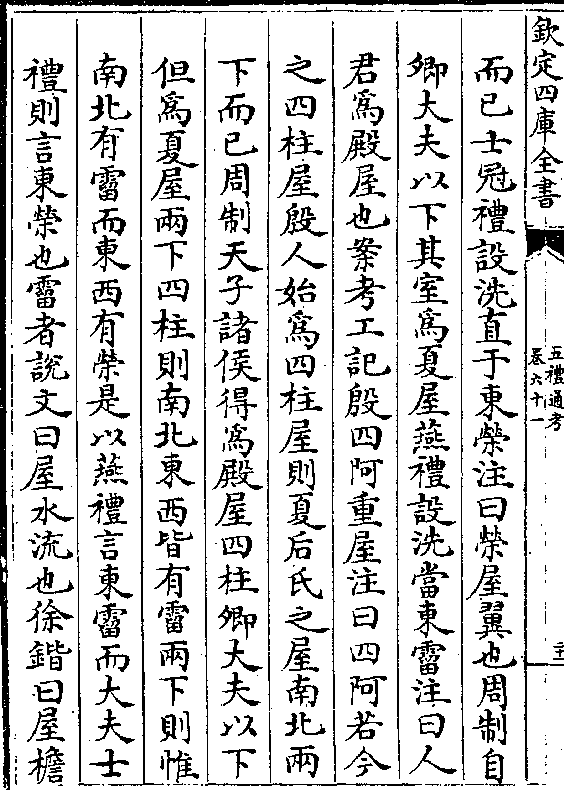 欽定四庫全書
五禮通考
卷六十一
而已士冠禮設洗直于東榮注曰榮屋翼也周制自
卿大夫以下其室為夏屋燕禮設洗當東霤注曰人
君為殿屋也案考工記殷四阿重屋注曰四阿若今
之四柱屋殷人始為四柱屋則夏后氏之屋南北兩
下而已周制天子諸侯得為殿屋四柱卿大夫以下
但為夏屋兩下四柱則南北東西皆有霤兩下則惟
南北有霤而東西有榮是以燕禮言東霤而大夫士
禮則言東榮也霤者說文曰屋水流也徐鍇曰屋檐